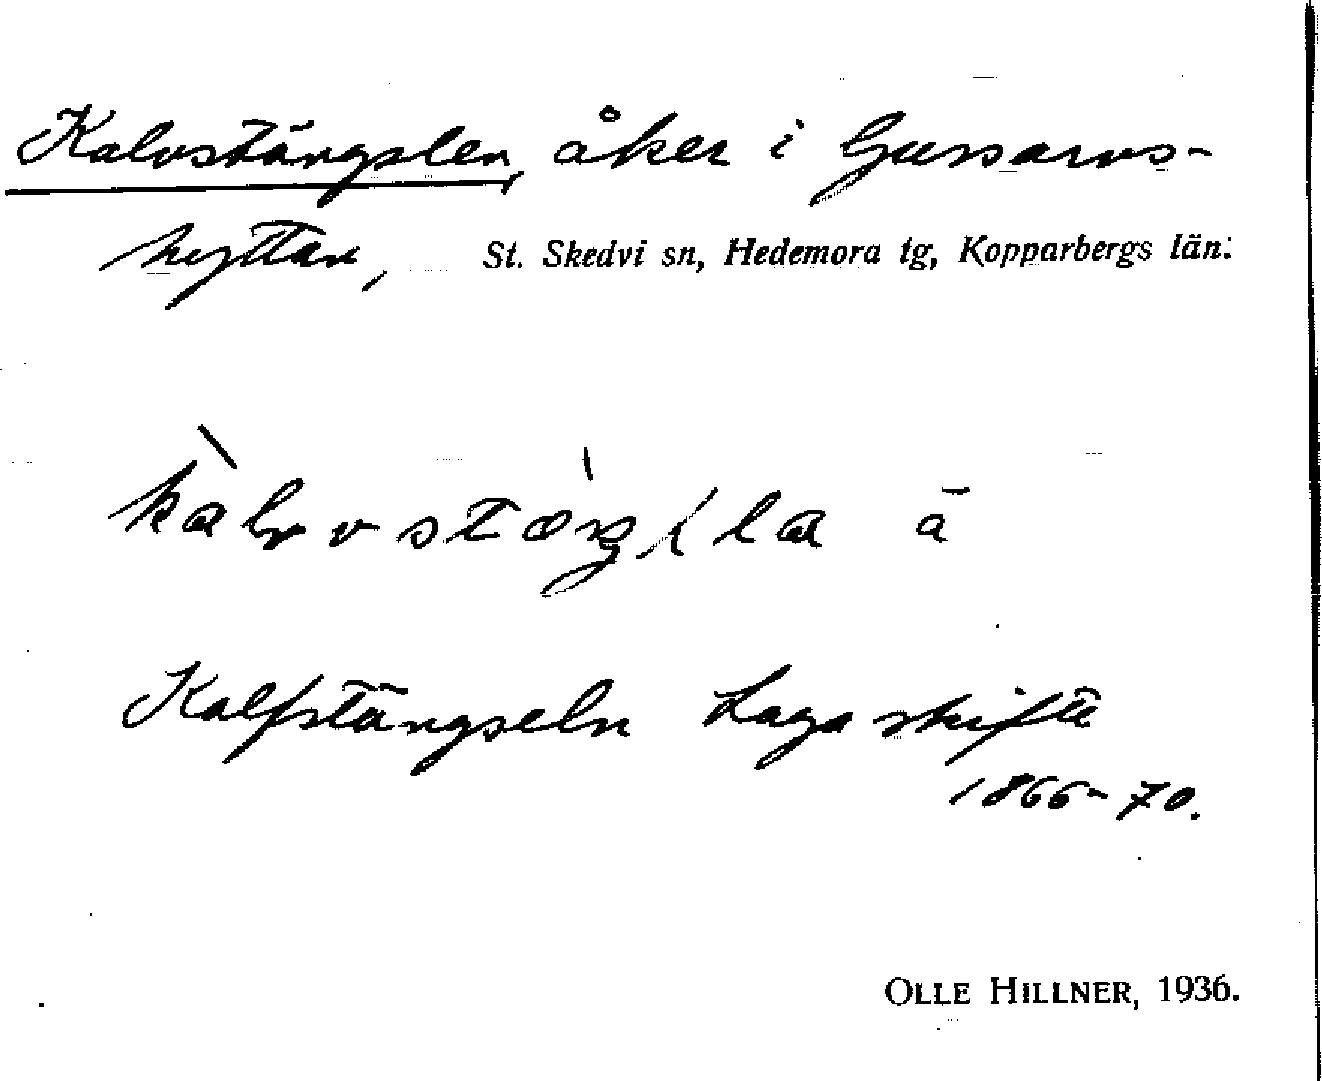 Kalvstängslen, åker i Gussarvs-
hyttan, St. Skedvi sn, Hedemora tg, Kopparbergs län.
à
Kalfstängseln Laga skifte
1866-70.
OLLE HILLNER, 1936.